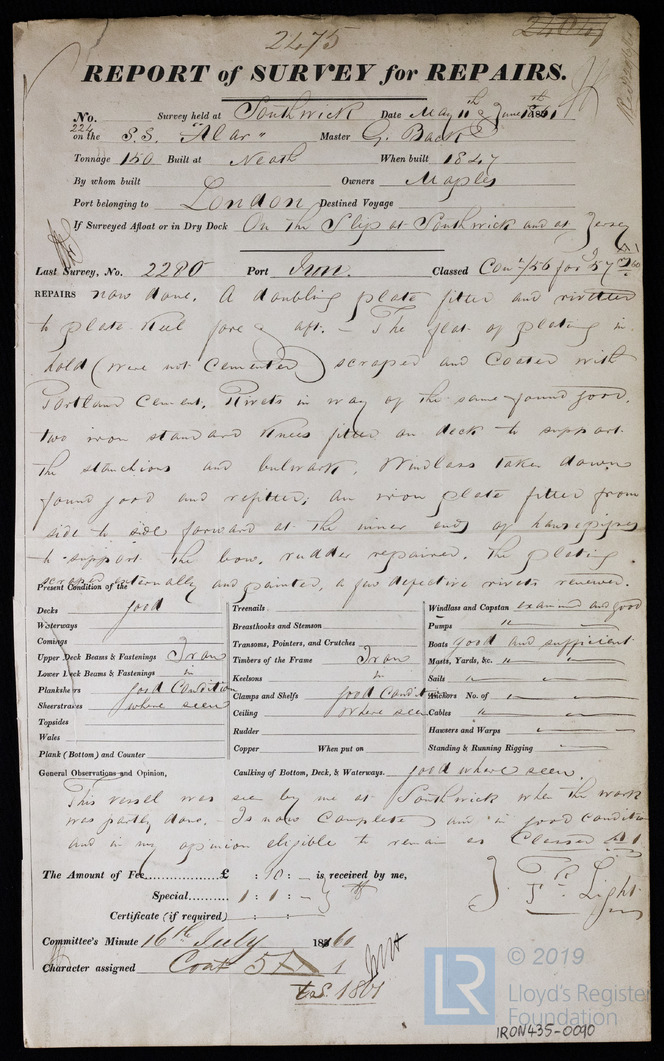 2475
REPORT of SURVEY for REPAIRS.
No. 224 Survey held at Southwick Date May 11th & June
on the S.S. "Alar" Master G. Back
Tonnage 150 Built at Neath When built 1847
By whom built Owners Maples
Port belonging to London Destined Voyage
If Surveyed Afloat or in Dry Dock On the Slip at Southwick and at Jersey
Last Survey, No. 2280 Port Classed
REPAIRS now done. A doubling plate fitted and rivetted
to plate keel fore & aft. — The flat of plating in
hold (were not cemented) scraped and coated with
Portland Cement. Rivets in way of the same found good.
two iron standard knees fitted on deck to support
the stanchions and bulwark. Windlass taken down
found good and refitted; an iron plate fitted from
side to side forward at the inner ends of hawsepipes
to support the bow. rudder repaired. The plating
scraped externally and painted, a few defective rivets renewed.
Present Condition of the
Decks good
Waterways
Comings
Upper Deck Beams & Fastenings Iron
Lower Deck Beams & Fastenings in
Planksheers good Condition
Sheerstrakes where seen
Topsides
Wales
Plank (Bottom) and Counter
Treenails
Breasthooks and Stemson
Transoms, Pointers, and Crutches
Timbers of the Frame Iron
Keelsons in
Clamps and Shelfs good Condit
Ceiling where seen
Rudder
Copper When put on
Windlass and Capstan examined and good
Pumps "
Boats good and sufficient
Masts, Yards, &c. "
Sails "
Anchors No. of "
Cables "
Hawsers and Warps
Standing & Running Rigging
General Observations and Opinion,
Caulking of Bottom, Deck, & Waterways. good where seen.
This vessel was seen by me at Southwick when the work
was partly done. — Is now complete and in good condition
and in my opinion eligible to remain as Classed A1
The Amount of Fee £ : 10 : — is received by me,
Special 1 : 1 : —
Certificate (if required) : :
Light
Committee's Minute 16th July 1860
Character assigned
1861
© 2019
LR Lloyd's Register
Foundation
IRON435-0090